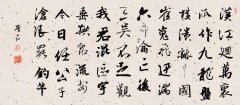 漢江迴萬里
派作九龍盤
橫潰豁中國
崔嵬飛迅湍
六帝淪亡後
三吳不足觀
我君混區宇
垂拱眾流安
今日任公子
滄浪罷釣竿